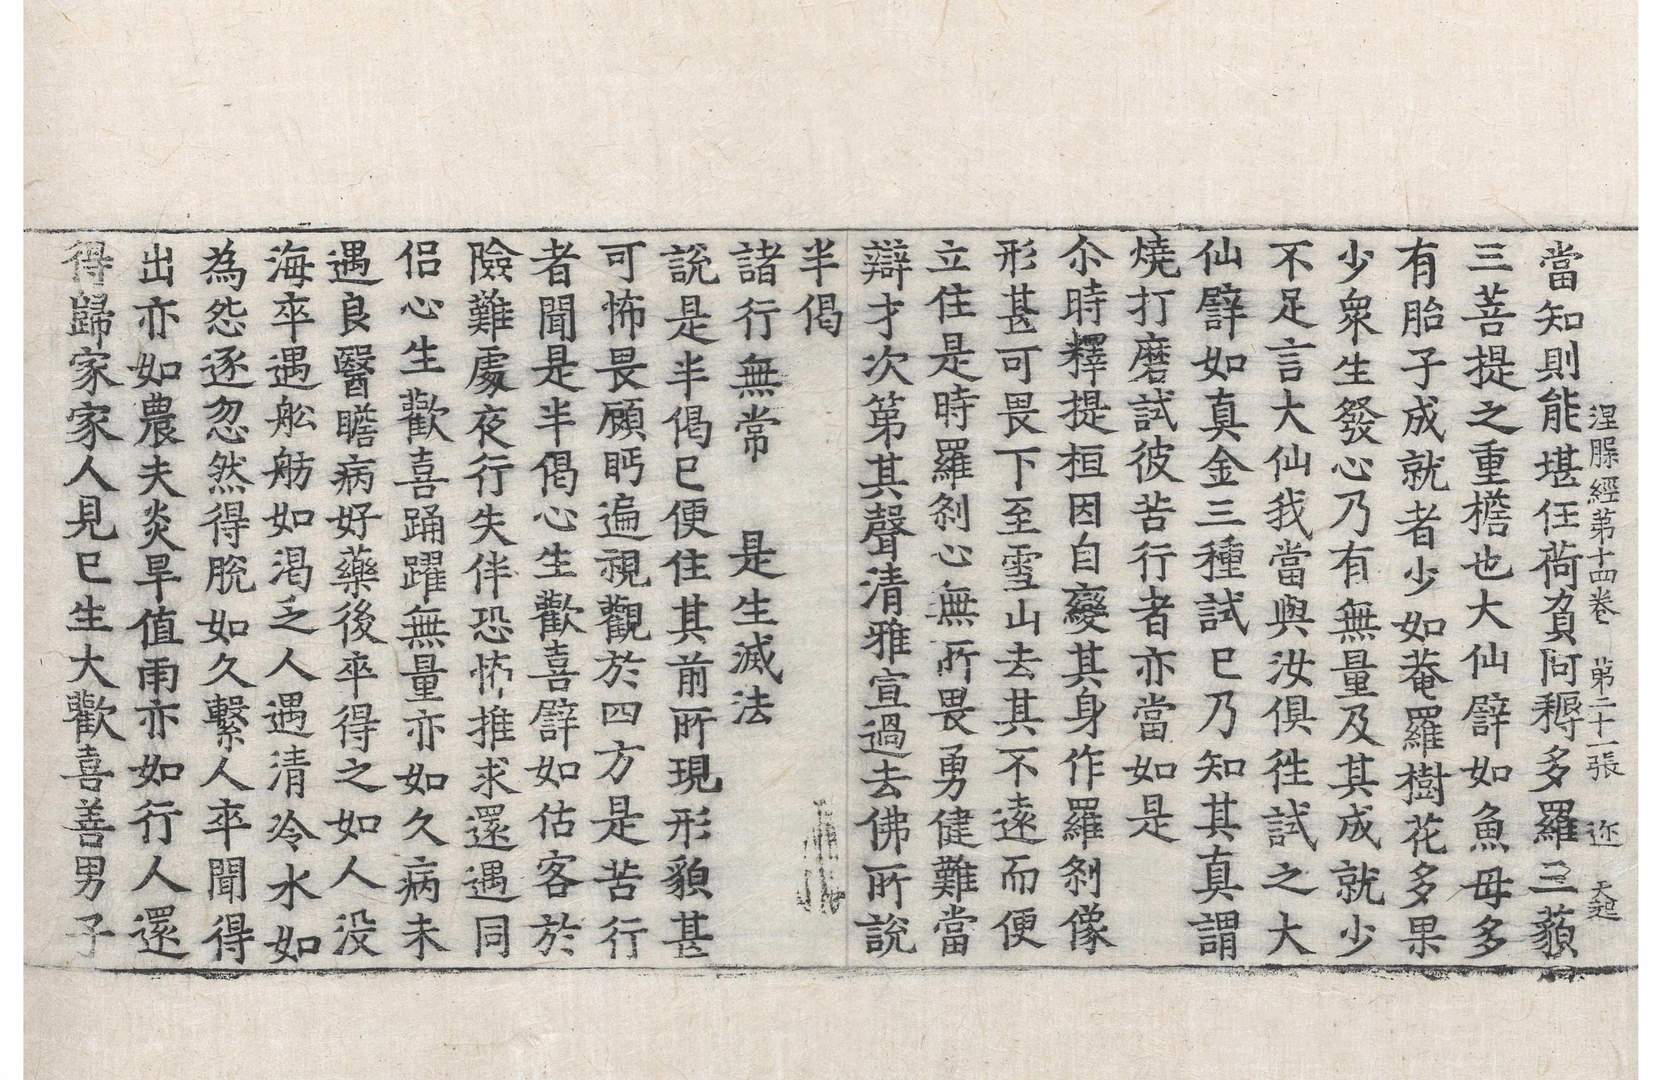 涅槃經第十四卷 第二十一張 迩 天起
當知則能堪任荷負阿耨多羅三藐
三菩提之重檐也大仙譬如魚母多
有胎子成就者少如菴羅樹花多果
少衆生發心乃有無量及其成就少
不足言大仙我當與汝俱徃試之大
仙譬如真金三種試已乃知其真謂
燒打磨試彼苦行者亦當如是
尒時釋提桓因自變其身作羅刹像
形甚可畏下至雪山去其不遠而便
立住是時羅刹心無所畏勇健難當
辯才次第其聲清雅宣過去佛所說
半偈
諸行無常 是生滅法
說是半偈已便住其前所現形貌甚
可怖畏顧眄遍視觀於四方是苦行
者聞是半偈心生歡喜譬如估客於
險難處夜行失伴恐怖推求還遇同
侶心生歡喜踊躍無量亦如久病未
遇良醫瞻病好藥後卒得之如人没
海卒遇舩舫如渴乏人遇清冷水如
為怨逐忽然得脫如久繫人卒聞得
出亦如農夫炎旱值雨亦如行人還
得歸家家人見已生大歡喜善男子